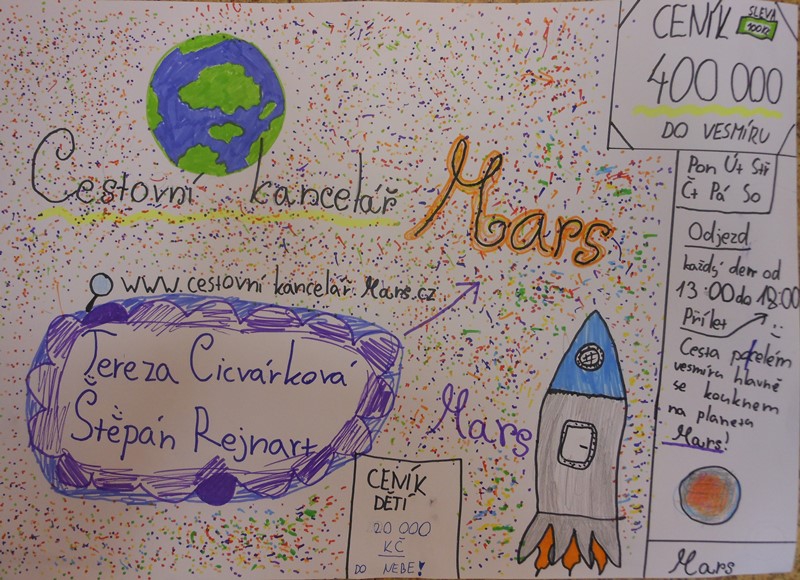 CENÍK
SLEVA
100 Kč
400 000
DO VESMÍRU
Cestovní kancelář Mars
www.cestovní kancelář.Mars.cz
Tereza Cicvárková
Štěpán Rejnart
Mars
CENÍK
DĚTÍ
20 000
KČ
DO NEBE!
Pon Út Stř
Čt Pá So
Odjezd
každý den od
13:00 do 18:00
Přílet
Cesta po celém
vesmíru hlavně
se kouknem
na planeta
Mars!
Mars